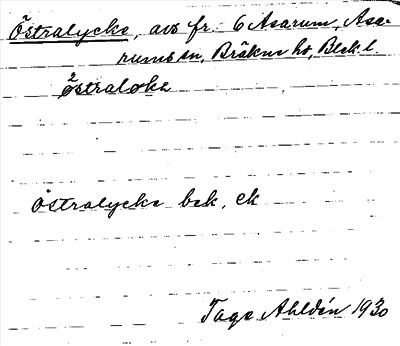 Östralycke, avs fr. 6 Asarum, Asa-
rums sn, Bräkne hd, Blek. l.
östraløkə
Östralycke bek, ek
Tage Ahldén 1930